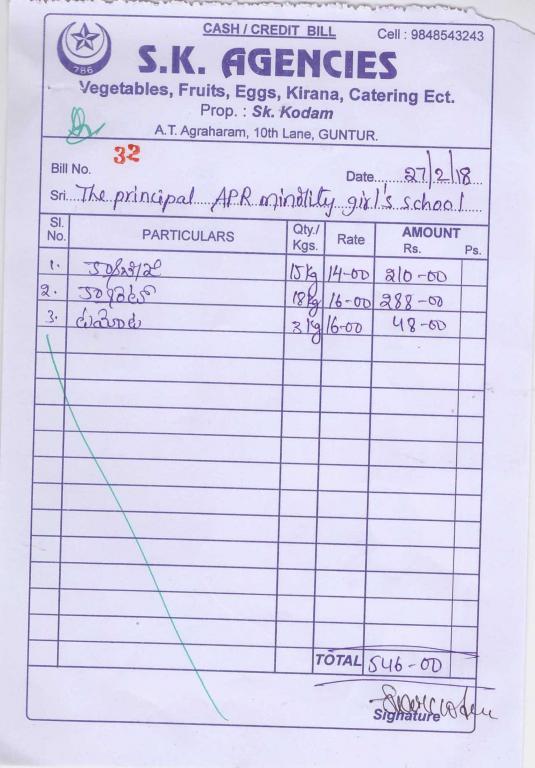 CASH / CREDIT BILL
Cell : 9848543243
786
S.K. AGENCIES
Vegetables, Fruits, Eggs, Kirana, Catering Ect.
Prop. : Sk. Kodam
A.T. Agraharam, 10th Lane, GUNTUR.
Bill No. 32
Date 27/2/18
Sri. The principal APR minority girl's school
Sl. No. PARTICULARS Qty./ Kgs. Rate AMOUNT Rs. Ps.
1. 15 kg 14-00 210-00
2. 18 kg 16-00 288-00
3. టమాటా 3 kg 16-00 48-00
TOTAL 546-00
Signature